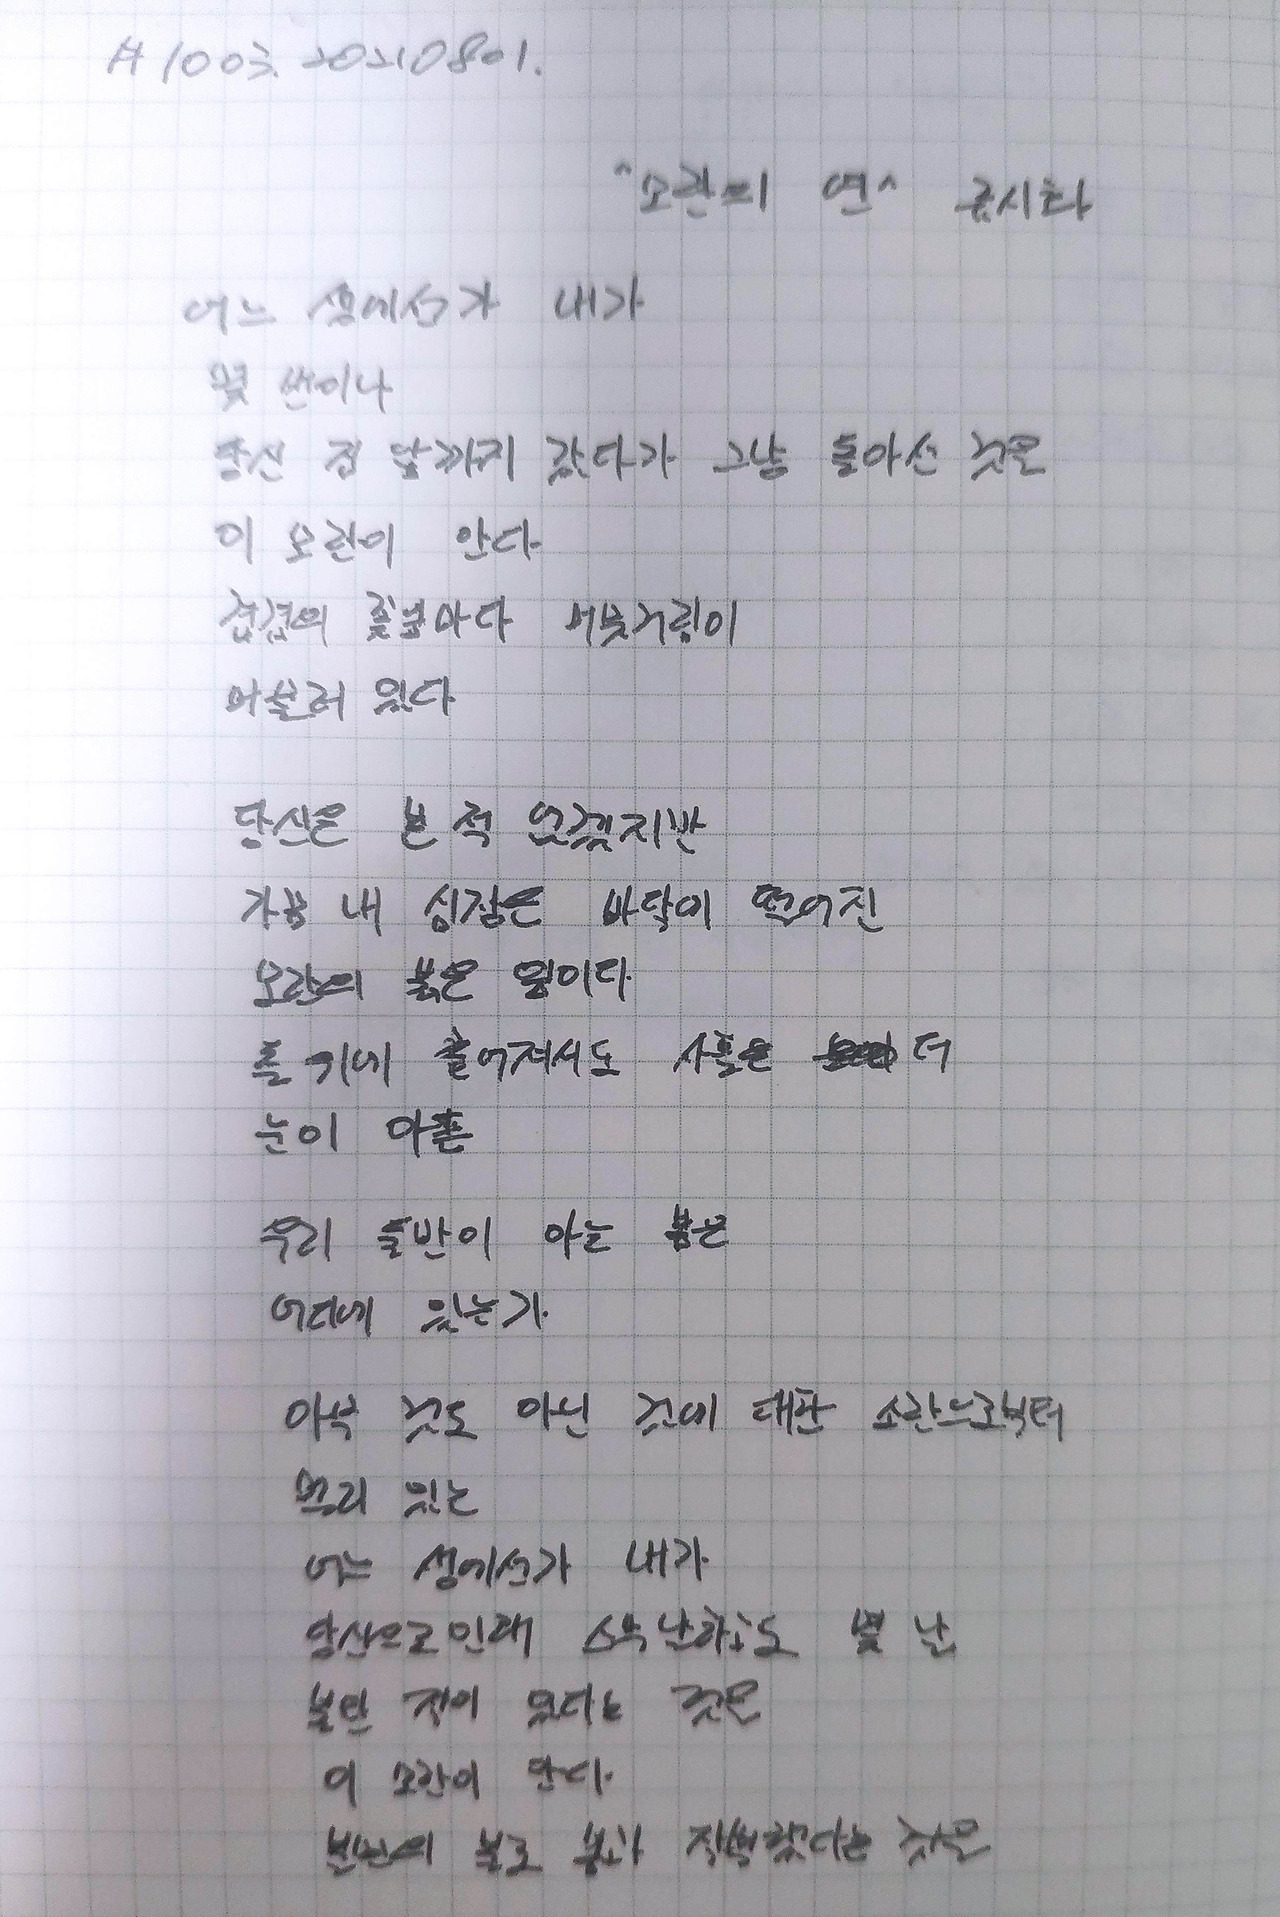 #100일. 20210801.
"모란의 연" 류시화
어느 생에선가 내가
몇 번이나
당신 집 앞까지 갔다가 그냥 돌아선 것을
이 모란이 안다
겹겹의 꽃잎마다 머뭇거림이
머물러 있다
당신은 본 적 없겠지만
가끔 내 심장은 바닥에 떨어진
모란의 붉은 잎이다
돌 위에 흩어져서도 사흘은 더
눈이 아픈
우리 둘만이 아는 봄은
어디에 있는가
아무 것도 아닌 것에 대한 소란으로부터
멀리 있는
어느 생에선가 내가
당신으로 인해 스무날하고도 몇 날
불탄 적이 있다는 것을
이 모란이 안다
불로 봄과 작별했다는 것을